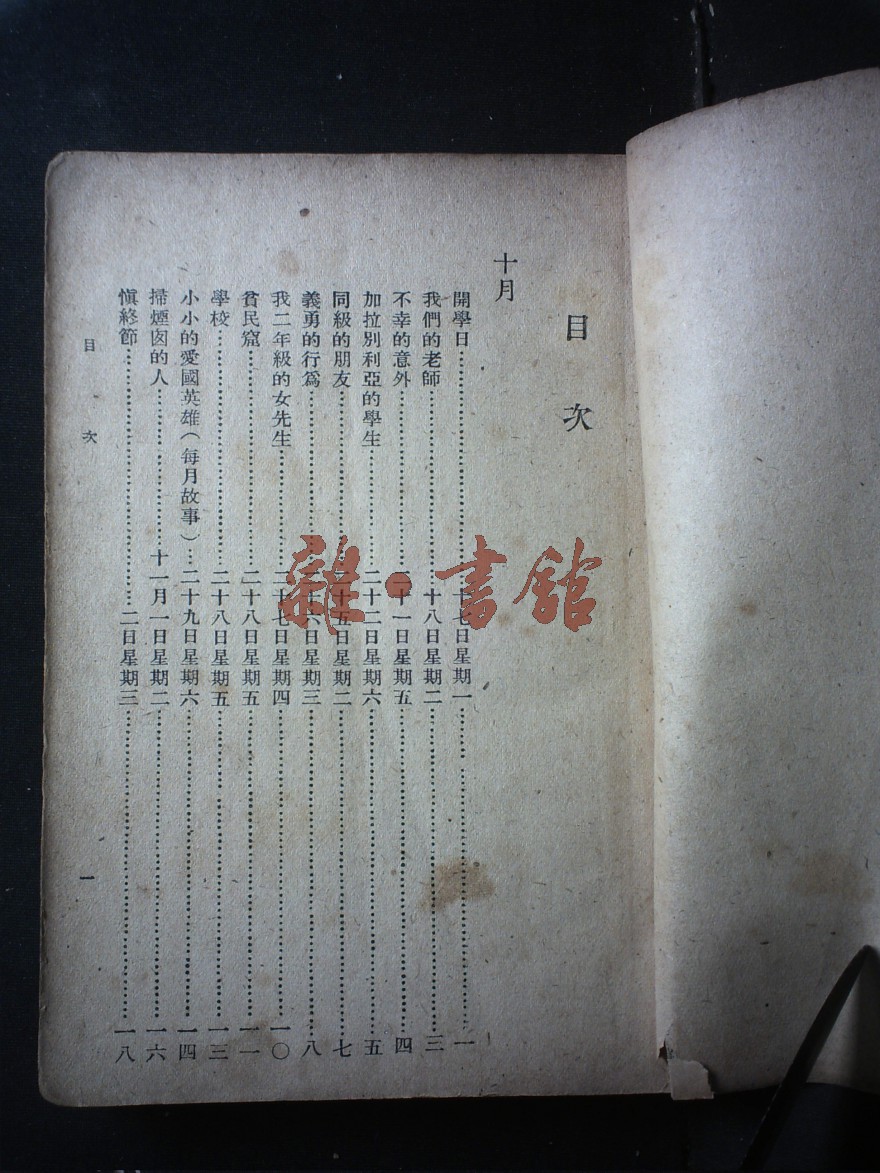 目次
十月
開學日……十七日星期一……一
我們的老師……十八日星期二……三
不幸的意外……二十一日星期五……四
加拉別利亞的學生……二十二日星期六……五
同級的朋友……二十五日星期二……七
義勇的行爲……二十六日星期三……八
我二年級的女先生……二十七日星期四……一〇
貧民窟……二十八日星期五……一一
學校……二十八日星期五……一三
小小的愛國英雄(每月故事)……二十九日星期六……一四
掃煙囪的人……十一月一日星期二……一六
愼終節……二日星期三……一八
目次
一
雜·書館